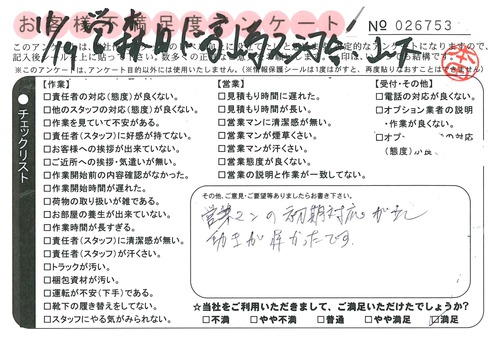 お客様不満足度アンケート
No 026753
11/19
山下
このアンケートは、
※このアンケートは、アンケート目的以外には使用いたしません。(※情報保護シールは1度はがすと、再度貼りなおすことはできません)
チェックリスト
【作業】
□責任者の対応(態度)が良くない。
□他のスタッフの対応(態度)が良くない。
□作業を見ていて不安がある。
□責任者(スタッフ)に好感が持てない。
□お客様への挨拶が出来ていない。
□ご近所への挨拶・気遣いが無い。
□作業開始前の内容確認がなかった。
□作業開始時間が遅れた。
□荷物の取り扱いが雑である。
□お部屋の養生が出来ていない。
□作業時間が長すぎる。
□責任者(スタッフ)に清潔感が無い。
□責任者(スタッフ)が汗くさい。
□トラックが汚い。
□梱包資材が汚い。
□運転が不安(下手)である。
□靴下の履き替えをしてない。
□スタッフにやる気がみられない。
【営業】
□見積もり時間に遅れた。
□見積もり時間が長い。
□営業マンに清潔感が無い。
□営業マンが煙草くさい。
□営業マンが汗くさい。
□営業態度が良くない。
□営業の説明と作業が一致してない。
【受付・その他】
□電話の対応が良くない。
□オプション業者の説明
・作業が良くない。
の対応
(態度)が良
その他、ご意見・ご要望等ありましたらお書き下さい。
営業マンの初期対応が少し
幼さが
かったです
☆当社をご利用いただきまして、ご満足いただけたでしょうか?
□不満 □やや不満 □普通 □やや満足 □満足